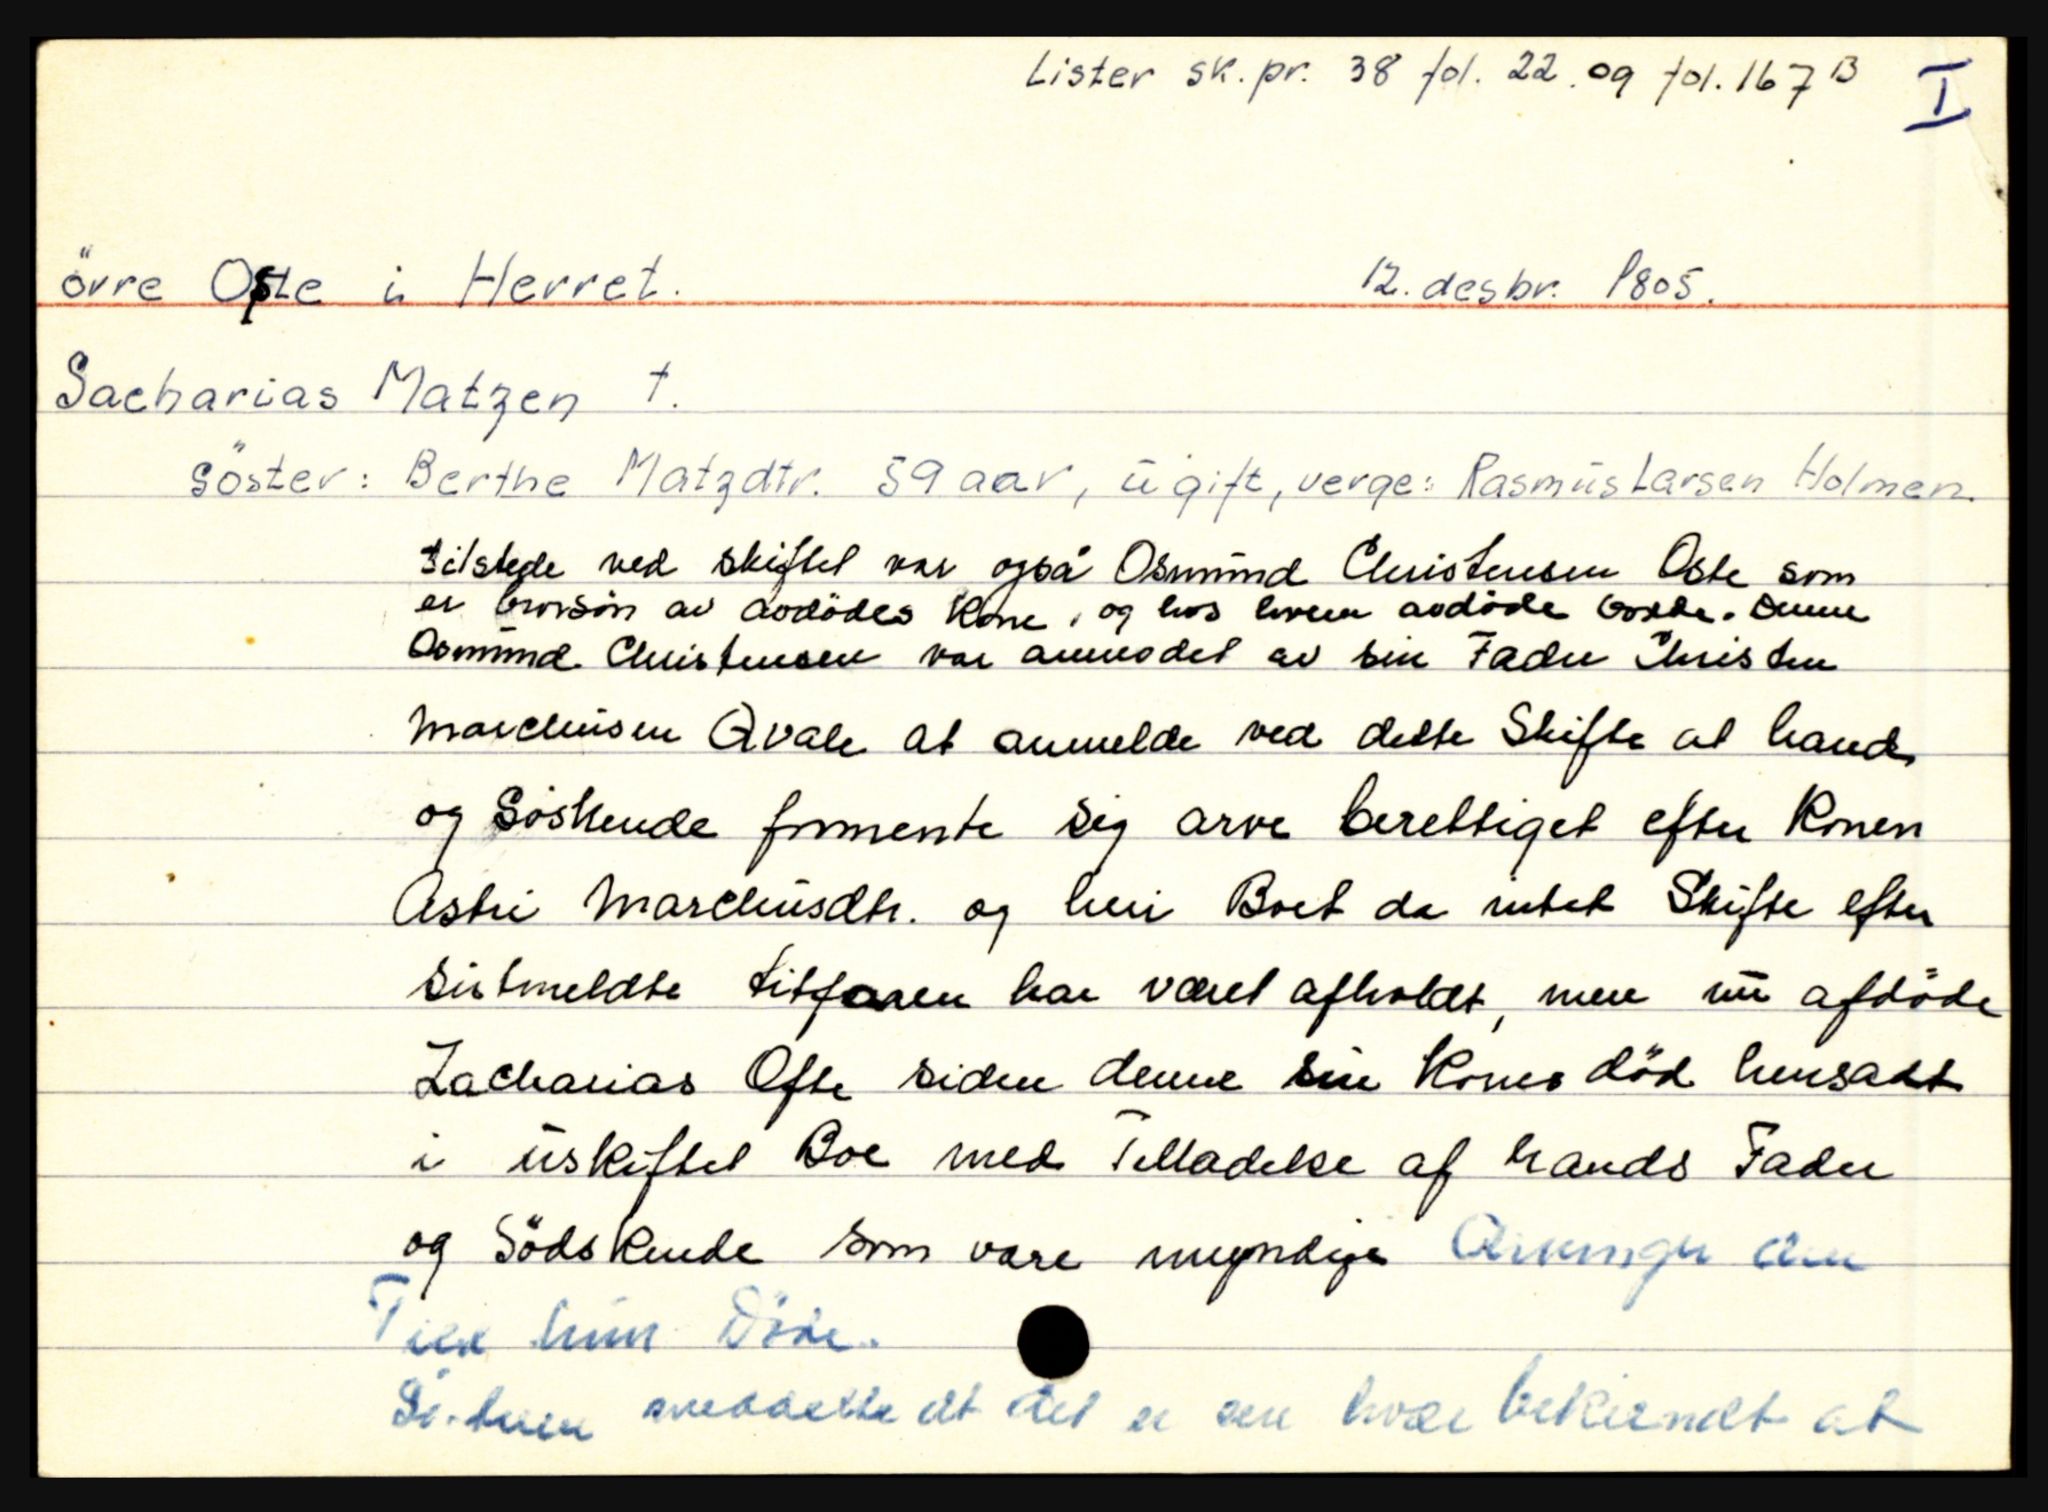 Lister sk. pr. 38 fol. 22. og fol. 167 B
I
övre Ofte i Herret. 12. desbr. 1805.
Sacharias Matzen †.
söster: Berthe Matzdtr. 59 aar, ugift, verge: Rasmus Larsen Holmen.
tilstede ved skiftet var også Osmund Christensen Oste som
er brorsön av avdödes Kone, og hos hvem avdöde bodde. Denne
Osmund Christensen var anmodet av sin Fader Christen
Marchusen Qvale at anmelde ved dette Skifte at hand
og Söskende formente sig arve berettiget efter Konen
Astri Marchusdtr. og hen i Boet da intet Skifte efter
sistmeldte har været afholdt, men nu afdöde
Zacharias Ofte siden denne sin Kones död hensadt
i uskiftet Boe med Tilladelse af hands Fader
og Södskende som vare myndige Arvinger den
Tiid hun Döde.
meddeelte at det er en hver bekiendt at